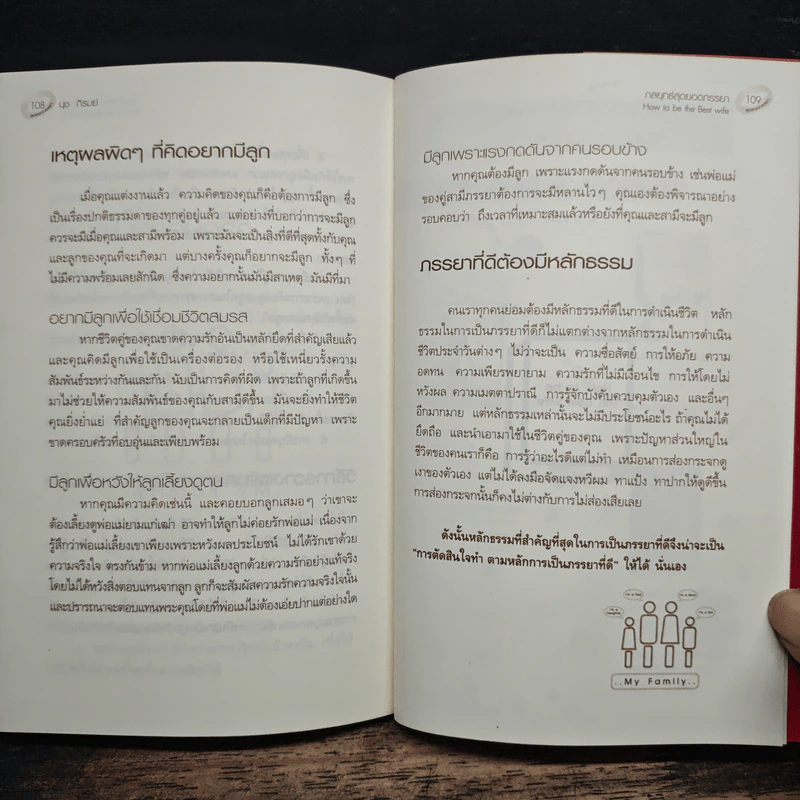 108 นุช ภิรมย์
เหตุผลผิดๆ ที่คิดอยากมีลูก
เมื่อคุณแต่งงานแล้ว ความคิดของคุณก็คือต้องการมีลูก ซึ่ง
เป็นเรื่องปกติธรรมดาของทุกคู่อยู่แล้ว แต่อย่างที่บอกว่าการจะมีลูก
ควรจะมีเมื่อคุณและสามีพร้อม เพราะมันจะเป็นสิ่งที่ดีที่สุดทั้งกับคุณ
และลูกของคุณที่จะเกิดมา แต่บางครั้งคุณก็อยากจะมีลูก ทั้งๆ ที่
ไม่มีความพร้อมเลยสักนิด ซึ่งความอยากนั้นมันมีสาเหตุ มันมีที่มา
อยากมีลูกเพื่อใช้เชื่อมชีวิตสมรส
หากชีวิตคู่ของคุณขาดความรักอันเป็นหลักยึดที่สำคัญเสียแล้ว
และคุณคิดมีลูกเพื่อใช้เป็นเครื่องต่อรอง หรือใช้เหนี่ยวรั้งความ
สัมพันธ์ระหว่างกันและกัน นับเป็นการคิดที่ผิด เพราะถ้าลูกที่เกิดขึ้น
มาไม่ช่วยให้ความสัมพันธ์ของคุณกับสามีดีขึ้น มันจะยิ่งทำให้ชีวิต
คุณยิ่งย่ำแย่ ที่สำคัญลูกของคุณจะกลายเป็นเด็กที่มีปัญหา เพราะ
ขาดครอบครัวที่อบอุ่นและเพียบพร้อม
มีลูกเพื่อหวังให้ลูกเลี้ยงดูตน
หากคุณมีความคิดเช่นนี้ และคอยบอกลูกเสมอๆ ว่าเขาจะ
ต้องเลี้ยงดูพ่อแม่ยามแก่เฒ่า อาจทำให้ลูกไม่ค่อยรักพ่อแม่ เนื่องจาก
รู้สึกว่าพ่อแม่เลี้ยงเขาเพียงเพราะหวังผลประโยชน์ ไม่ได้รักเขาด้วย
ความจริงใจ ตรงกันข้าม หากพ่อแม่เลี้ยงลูกด้วยความรักอย่างแท้จริง
โดยไม่ได้หวังสิ่งตอบแทนจากลูก ลูกก็จะสัมผัสความรักความจริงใจนั้น
และปรารถนาจะตอบแทนพระคุณโดยที่พ่อแม่ไม่ต้องเอ่ยปากแต่อย่างใด
กลยุทธ์สุดยอดภรรยา 109
How to be the Best wife
มีลูกเพราะแรงกดดันจากคนรอบข้าง
หากคุณต้องมีลูก เพราะแรงกดดันจากคนรอบข้าง เช่นพ่อแม่
ของคู่สามีภรรยาต้องการจะมีหลานไวๆ คุณเองต้องพิจารณาอย่าง
รอบคอบว่า ถึงเวลาที่เหมาะสมแล้วหรือยังที่คุณและสามีจะมีลูก
ภรรยาที่ดีต้องมีหลักธรรม
คนเราทุกคนย่อมต้องมีหลักธรรมที่ดีในการดำเนินชีวิต หลัก
ธรรมในการเป็นภรรยาที่ดีก็ไม่แตกต่างจากหลักธรรมในการดำเนิน
ชีวิตประจำวันต่างๆ ไม่ว่าจะเป็น ความซื่อสัตย์ การให้อภัย ความ
อดทน ความเพียรพยายาม ความรักที่ไม่มีเงื่อนไข การให้โดยไม่
หวังผล ความเมตตาปราณี การรู้จักบังคับควบคุมตัวเอง และอื่นๆ
อีกมากมาย แต่หลักธรรมเหล่านั้นจะไม่มีประโยชน์อะไร ถ้าคุณไม่ได้
ยึดถือ และนำเอามาใช้ในชีวิตคู่ของคุณ เพราะปัญหาส่วนใหญ่ใน
ชีวิตของคนเราก็คือ การรู้ว่าอะไรดีแต่ไม่ทำ เหมือนการส่องกระจกดู
เงาของตัวเอง แต่ไม่ได้ลงมือจัดแจงหวีผม ทาแป้ง ทาปากให้ดูดีขึ้น
การส่องกระจกนั้นก็คงไม่ต่างกับการไม่ส่องเสียเลย
ดังนั้นหลักธรรมที่สำคัญที่สุดในการเป็นภรรยาที่ดีจึงน่าจะเป็น
"การตัดสินใจทำ ตามหลักการเป็นภรรยาที่ดี" ให้ได้ นั่นเอง
..My Family..